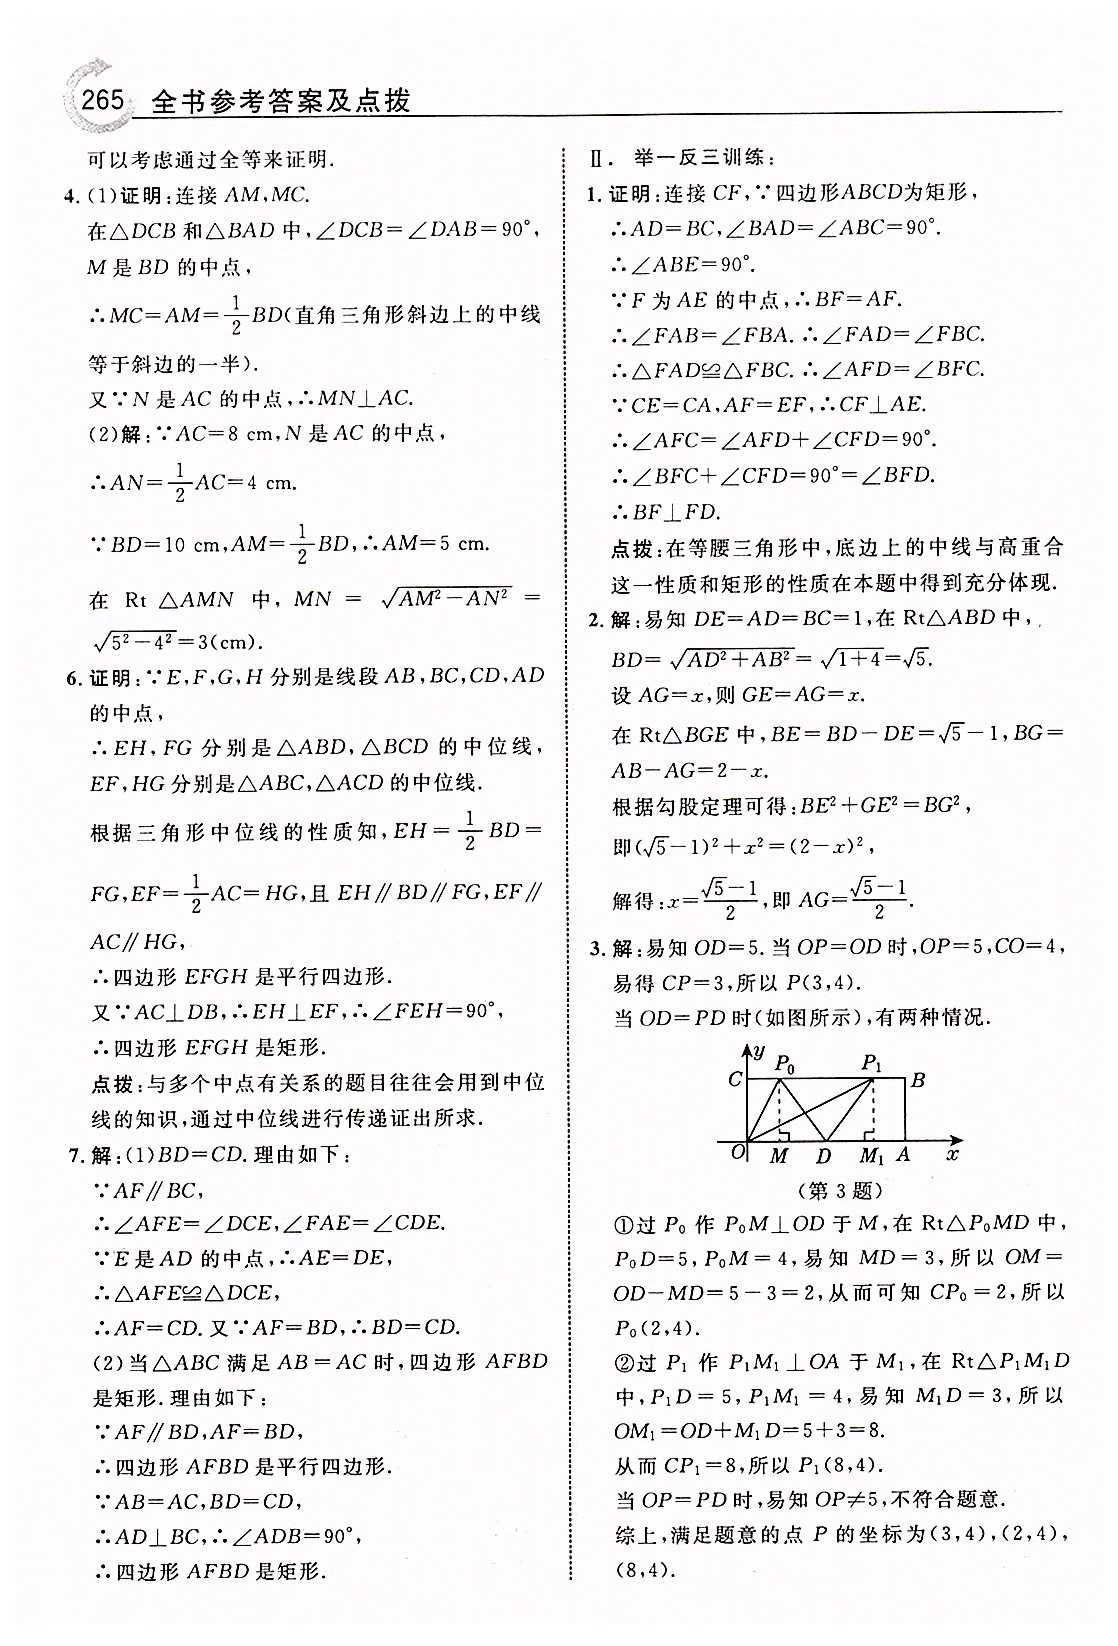 265 全书参考答案及点拨
可以考虑通过全等来证明.
4. (1)证明:连接 AM,MC.
在△DCB 和△BAD 中,∠DCB=∠DAB=90°,
M 是 BD 的中点,
∴MC=AM=1/2 BD(直角三角形斜边上的中线
等于斜边的一半).
又∵N 是 AC 的中点,∴MN⊥AC.
(2)解:∵AC=8 cm,N 是 AC 的中点,
∴AN=1/2 AC=4 cm.
∵BD=10 cm,AM=1/2 BD,∴AM=5 cm.
在 Rt △AMN 中, MN = √(AM²-AN²) =
√(5²-4²)=3(cm).
6. 证明:∵E,F,G,H 分别是线段 AB,BC,CD,AD
的中点,
∴EH, FG 分别是△ABD, △BCD 的中位线,
EF,HG 分别是△ABC,△ACD 的中位线.
根据三角形中位线的性质知,EH=1/2 BD=
FG,EF=1/2 AC=HG,且 EH∥BD∥FG,EF∥
AC∥HG,
∴四边形 EFGH 是平行四边形.
又∵AC⊥DB,∴EH⊥EF,∴∠FEH=90°,
∴四边形 EFGH 是矩形.
点拨:与多个中点有关系的题目往往会用到中位
线的知识,通过中位线进行传递证出所求.
7. 解:(1)BD=CD.理由如下:
∵AF∥BC,
∴∠AFE=∠DCE,∠FAE=∠CDE.
∵E 是 AD 的中点,∴AE=DE,
∴△AFE≌△DCE,
∴AF=CD.又∵AF=BD,∴BD=CD.
(2)当△ABC 满足 AB=AC 时,四边形 AFBD
是矩形.理由如下:
∵AF∥BD,AF=BD,
∴四边形 AFBD 是平行四边形.
∵AB=AC,BD=CD,
∴AD⊥BC,∴∠ADB=90°,
∴四边形 AFBD 是矩形.
Ⅱ. 举一反三训练:
1. 证明:连接 CF,∵四边形ABCD为矩形,
∴AD=BC,∠BAD=∠ABC=90°.
∴∠ABE=90°.
∵F 为 AE 的中点,∴BF=AF.
∴∠FAB=∠FBA.∴∠FAD=∠FBC.
∴△FAD≌△FBC.∴∠AFD=∠BFC.
∵CE=CA,AF=EF,∴CF⊥AE.
∴∠AFC=∠AFD+∠CFD=90°.
∴∠BFC+∠CFD=90°=∠BFD.
∴BF⊥FD.
点拨:在等腰三角形中,底边上的中线与高重合
这一性质和矩形的性质在本题中得到充分体现.
2. 解:易知 DE=AD=BC=1,在 Rt△ABD 中,
BD= √(AD²+AB²) = √(1+4)=√5.
设 AG=x,则 GE=AG=x.
在 Rt△BGE 中,BE=BD-DE=√5-1,BG=
AB-AG=2-x.
根据勾股定理可得:BE²+GE²=BG²,
即(√5-1)²+x²=(2-x)²,
解得:x=(√5-1)/2,即 AG=(√5-1)/2.
3. 解:易知 OD=5.当 OP=OD 时,OP=5,CO=4,
易得 CP=3,所以 P(3,4).
当 OD=PD 时(如图所示),有两种情况.
y P₀ P₁
C B
O M D M₁ A x
(第 3 题)
①过 P₀ 作 P₀M⊥OD 于 M,在 Rt△P₀MD 中,
P₀D=5,P₀M=4,易知 MD=3,所以 OM=
OD-MD=5-3=2,从而可知 CP₀=2,所以
P₀(2,4).
②过 P₁ 作 P₁M₁⊥OA 于 M₁,在 Rt△P₁M₁D
中,P₁D=5,P₁M₁=4,易知 M₁D=3,所以
OM₁=OD+M₁D=5+3=8.
从而 CP₁=8,所以 P₁(8,4).
当 OP=PD 时,易知 OP≠5,不符合题意.
综上,满足题意的点 P 的坐标为(3,4),(2,4),
(8,4).